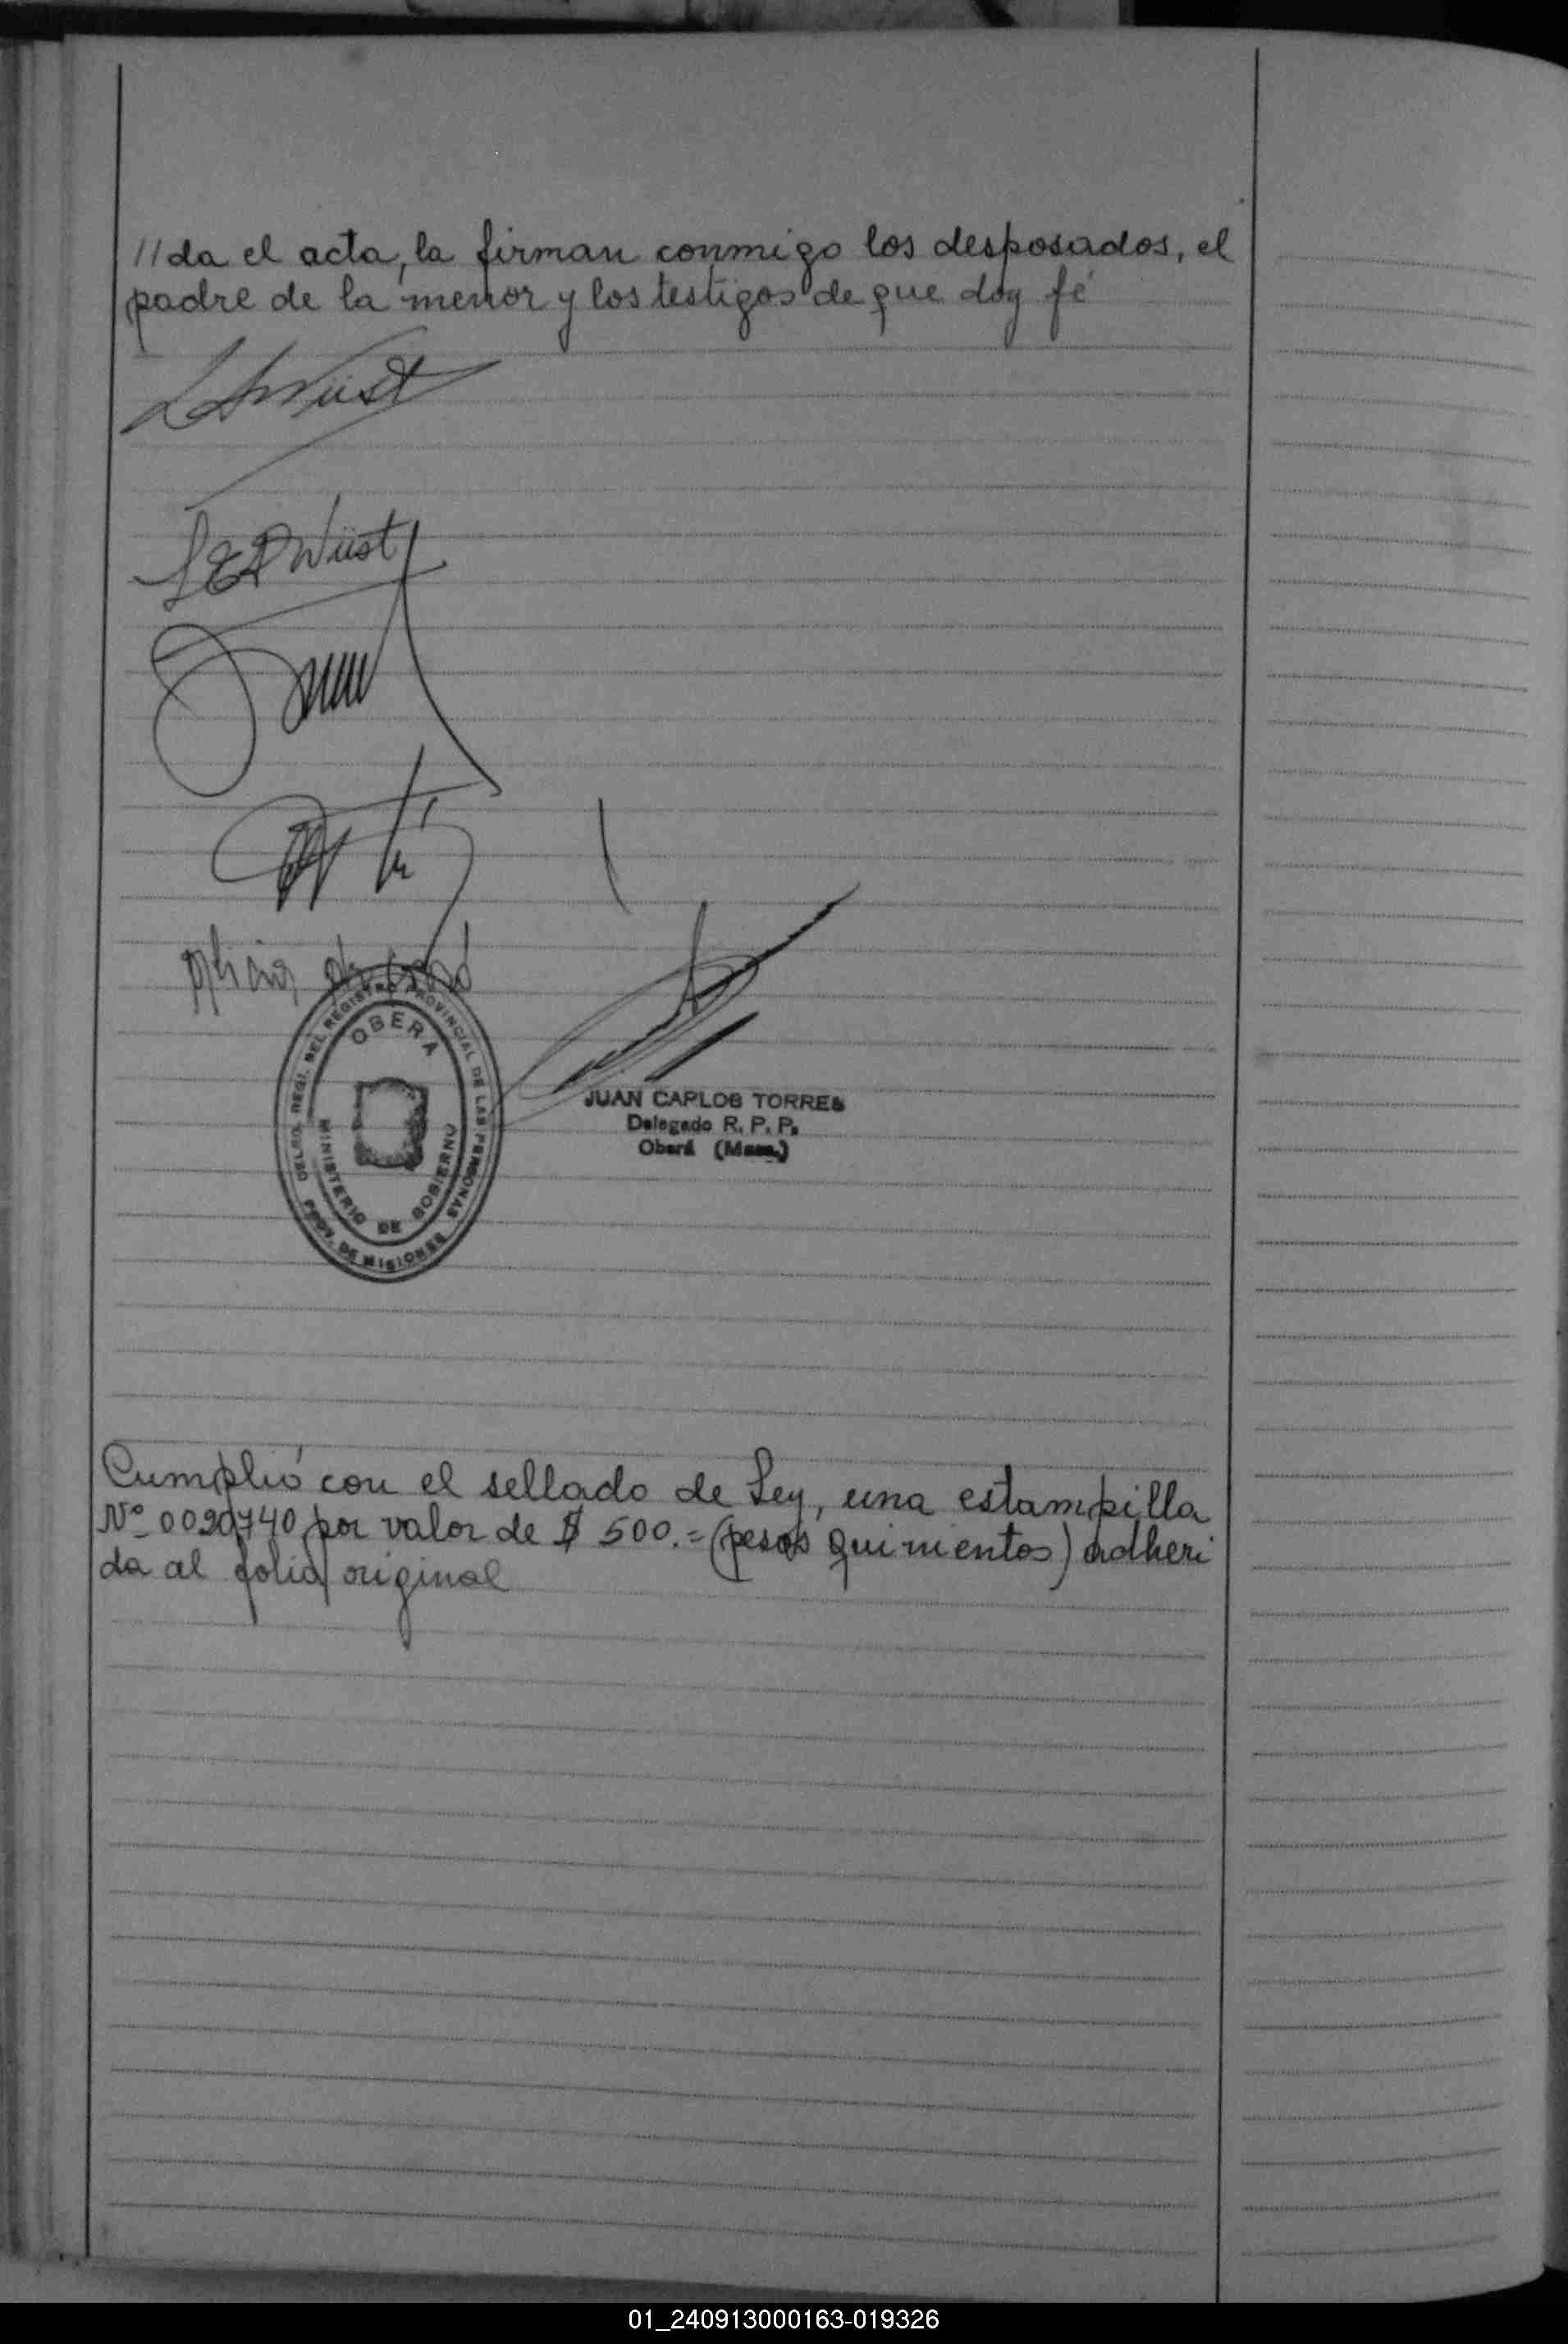 //da el acta, la firman conmigo los desposados, el
padre de la menor y los testigos de que doy fé
Wüst
Wüst
DEL REGISTRO PROVINCIAL DE LAS PERSONAS
OBERA
MINISTERIO DE GOBIERNO
PROV. DE MISIONES
JUAN CARLOS TORRES
Delegado R. P. P.
Oberá (Msns.)
Cumplió con el sellado de Ley, una estampilla
Nº 0090740 por valor de $ 500.= (pesos quinientos) adheri
da al folio original
01_240913000163-019326